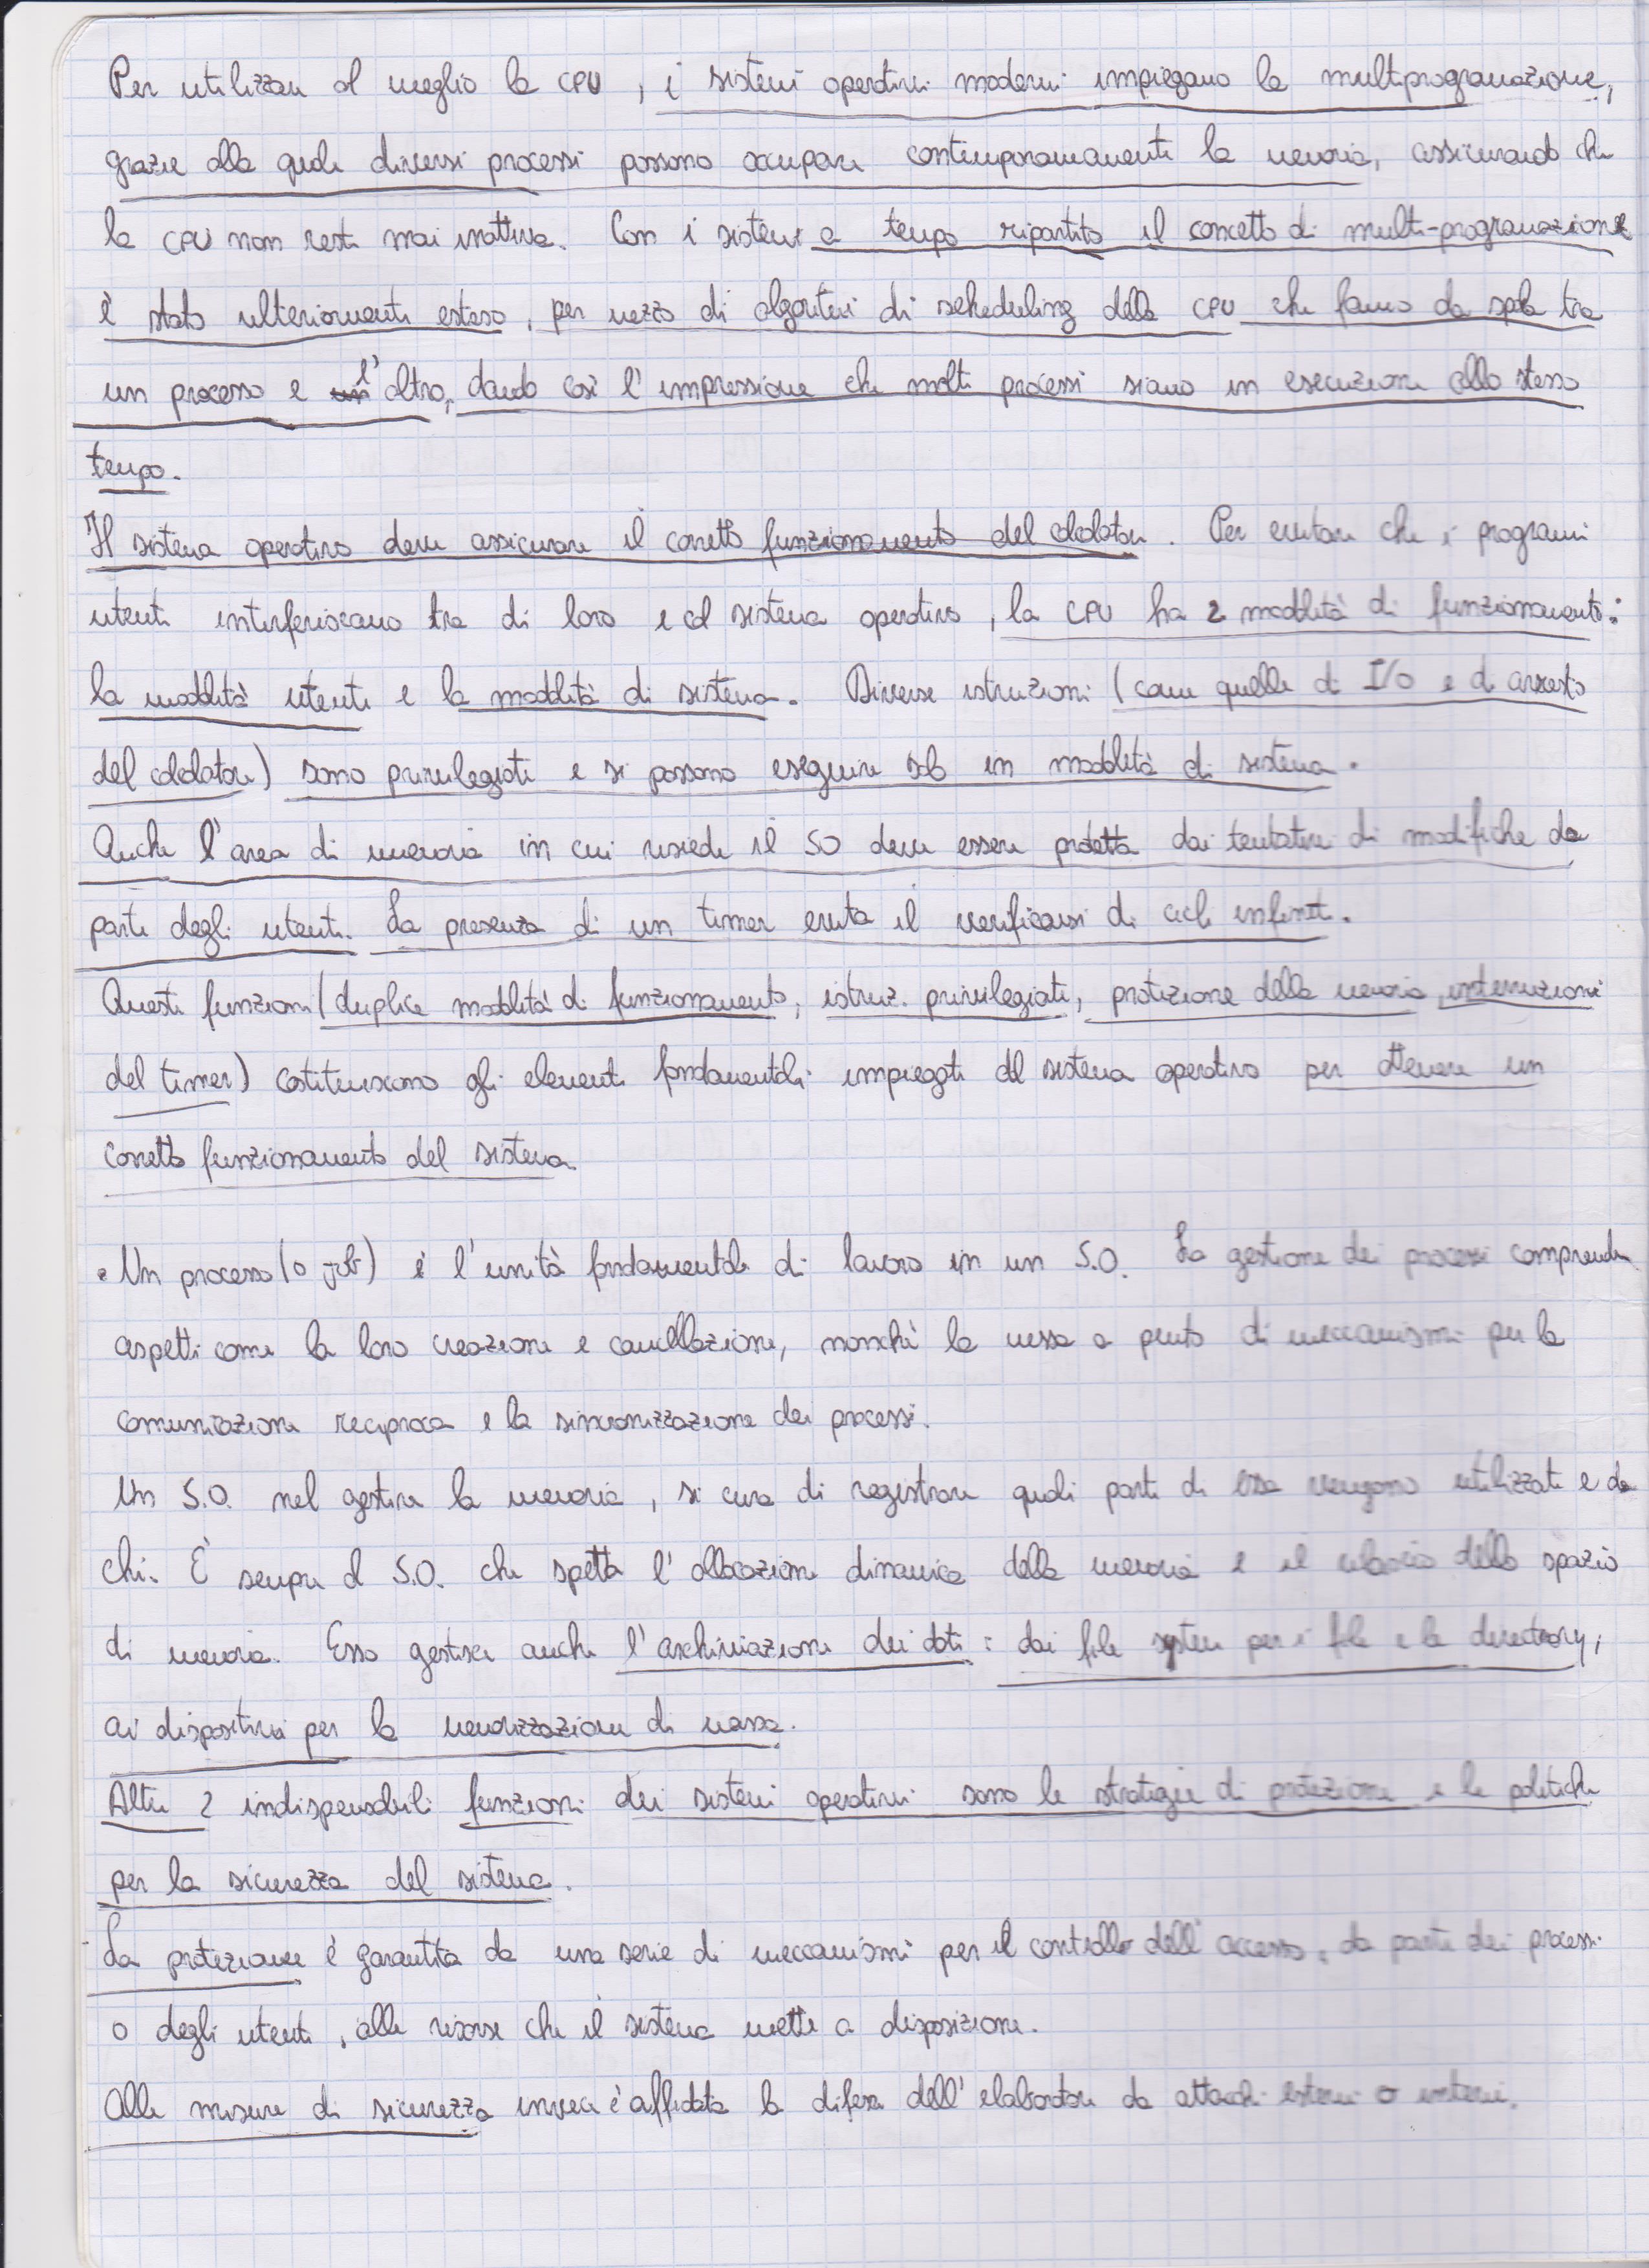 Per utilizzare al meglio la CPU, i sistemi operativi moderni impiegano la multiprogrammazione,
grazie alla quale diversi processi possono occupare contemporaneamente la memoria, assicurando che
la CPU non resti mai inattiva. Con i sistemi a tempo ripartito il concetto di multi-programmazione
è stato ulteriormente esteso, per mezzo di algoritmi di scheduling della CPU che fanno da spola tra
un processo e l'altro, dando così l'impressione che molti processi siano in esecuzione allo stesso
tempo.
Il sistema operativo deve assicurare il corretto funzionamento del calcolatore. Per evitare che i programmi
utenti interferiscano tra di loro e col sistema operativo, la CPU ha 2 modalità di funzionamento:
la modalità utente e la modalità di sistema. Diverse istruzioni (come quelle di I/O e di arresto
del calcolatore) sono privilegiate e si possono eseguire solo in modalità di sistema.
Anche l'area di memoria in cui risiede il SO deve essere protetta dai tentativi di modifiche da
parte degli utenti. La presenza di un timer evita il verificarsi di cicli infiniti.
Queste funzioni (duplice modalità di funzionamento, istruz. privilegiate, protezione della memoria, interruzioni
del timer) costituiscono gli elementi fondamentali impiegati dal sistema operativo per ottenere un
corretto funzionamento del sistema.
• Un processo (o job) è l'unità fondamentale di lavoro in un S.O. La gestione dei processi comprende
aspetti come la loro creazione e cancellazione, nonchè la messa a punto di meccanismi per la
comunicazione reciproca e la sincronizzazione dei processi.
Un S.O. nel gestire la memoria, si cura di registrare quali parti di essa vengono utilizzate e da
chi. È sempre al S.O. che spetta l'allocazione dinamica della memoria e il rilascio dello spazio
di memoria. Esso gestisce anche l'archiviazione dei dati: dai file system per i file e le directory,
ai dispositivi per la memorizzazione di massa.
Altre 2 indispensabili funzioni dei sistemi operativi sono le strategie di protezione e le politiche
per la sicurezza del sistema.
La protezione è garantita da una serie di meccanismi per il controllo dell'accesso, da parte dei processi
o degli utenti, alle risorse che il sistema mette a disposizione.
Alle misure di sicurezza invece è affidata la difesa dell'elaboratore da attacchi esterni o interni.